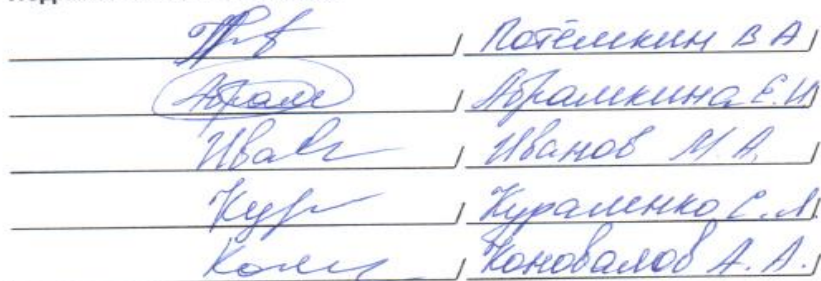 / Потёмкин В А /
Абрам / Абрамкина Е.И /
Иван / Иванов М.А. /
Кур / Кураленко С.А. /
/ Коновалов А.А. /